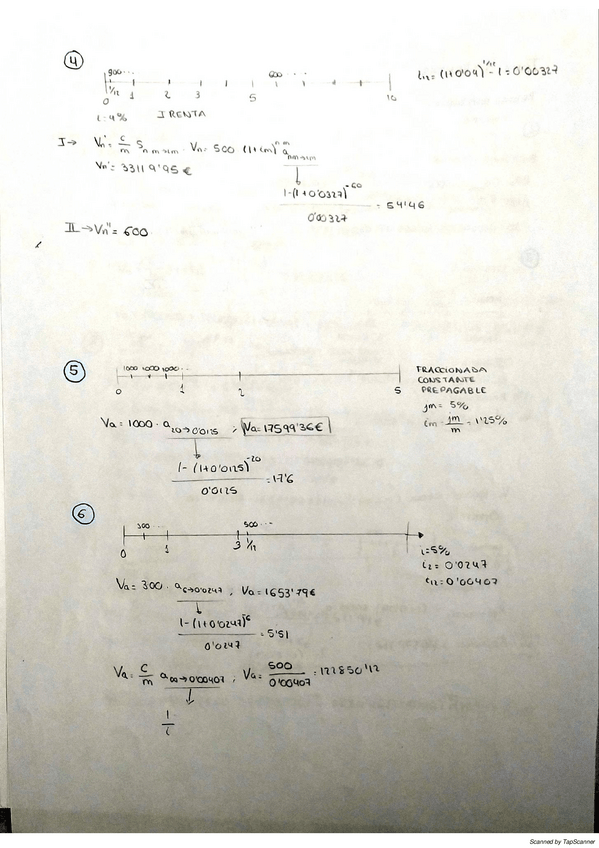 4
900··· 600 · · ·
i₁₂ = (1+0'04)^1/12 - 1 = 0'00327
0 1/12 1 2 3 5 10
i=4% I RENTA
I→ Vn' = C/m S n m→im . Vn = 500 (1+im)^nm a nm→im
Vn' = 33119'95 €
1-(1+0'0327)^-60 / 0'00327 = 54'46
II→Vn'' = 600
5
1000 1000 1000···
0 1 2 5
FRACCIONADA
CONSTANTE
PREPAGABLE
jm = 5%
im = jm/m = 1'25%
Va = 1000 · a 20→0'0125 ; Va = 17599'36€
1- (1+0'0125)^-20 / 0'0125 = 17'6
6
300 ··· 500 ···
0 1 3 1/12
i=5%
i₂ = 0'0247
i₁₂ = 0'00407
Va = 300 · a 6→0'0247 ; Va = 1653'79€
1-(1+0'0247)^-6 / 0'0247 = 5'51
Va = C/m a ∞→0'00407 ; Va = 500 / 0'00407 = 122850'12
1/i
Scanned by TapScanner